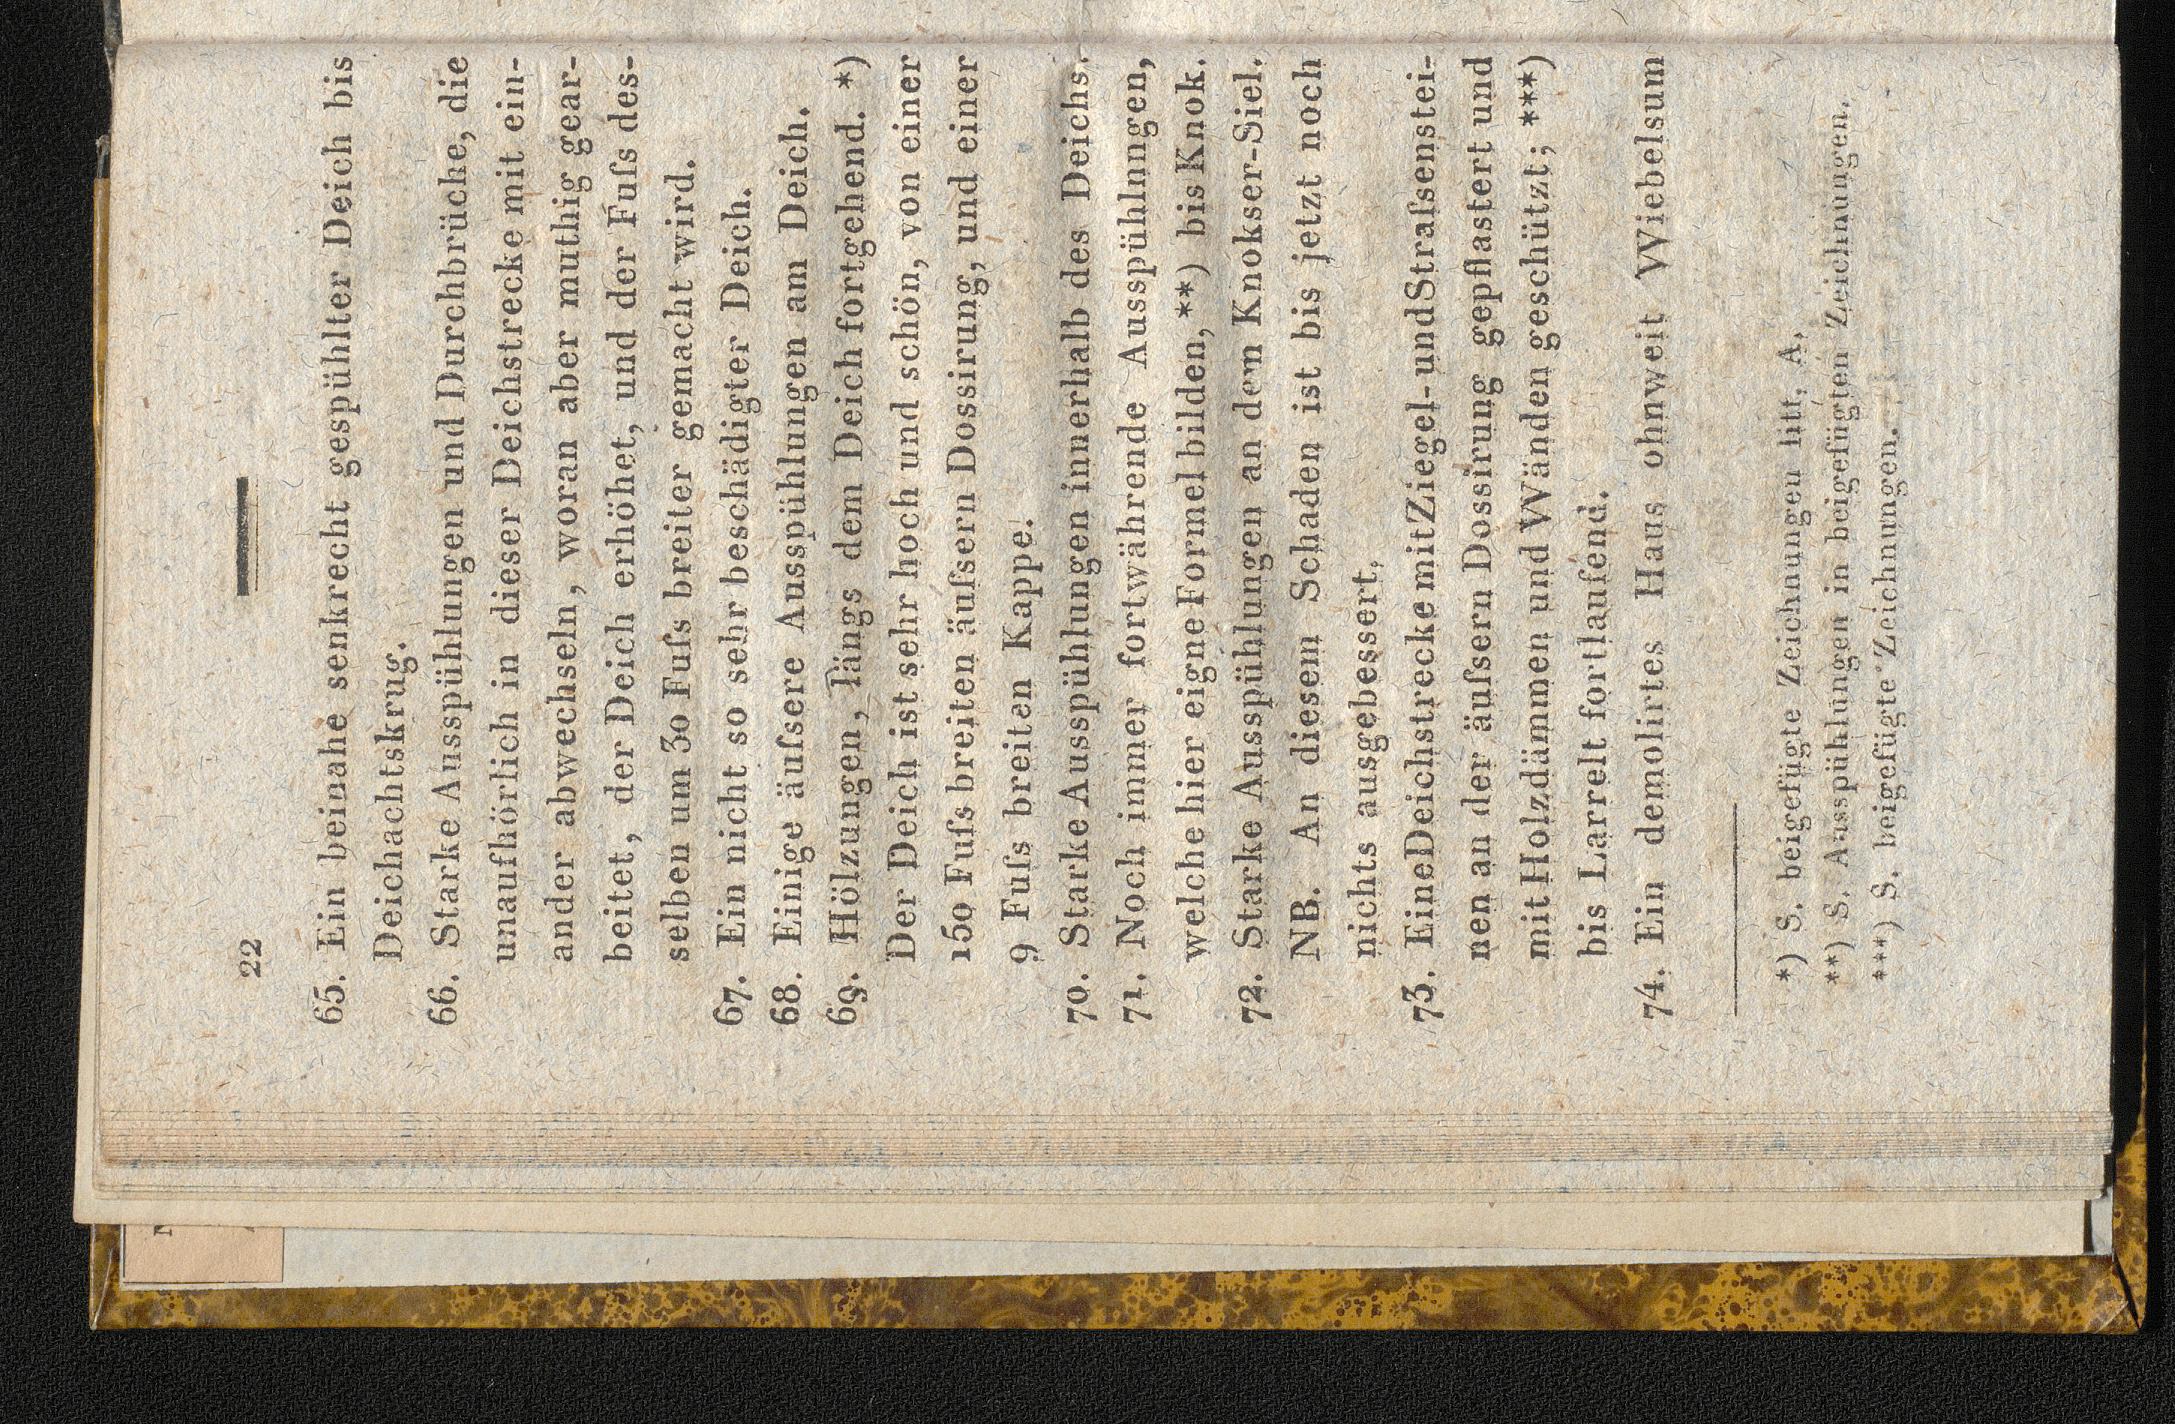 22
65. Ein beinahe senkrecht gespühlter Deich bis
Deichachtskrug.
66. Starke Ausspühlungen und Durchbrüche, die
unaufhörlich in dieser Deichstrecke mit ein-
ander abwechseln, woran aber muthig gear-
beitet, der Deich erhöhet, und der Fuſs des-
selben um 30 Fuſs breiter gemacht wird.
67. Ein nicht so sehr beschädigter Deich.
68. Einige äuſsere Ausspühlungen am Deich.
69. Hölzungen, längs dem Deich fortgehend. *)
Der Deich ist sehr hoch und schön, von einer
150 Fuſs breiten äuſsern Dossirung, und einer
9 Fuſs breiten Kappe.
70. Starke Ausspühlungen innerhalb des Deichs.
71. Noch immer fortwährende Ausspühlnngen,
welche hier eigne Formel bilden, **) bis Knok.
72. Starke Ausspühlungen an dem Knokser-Siel.
NB. An diesem Schaden ist bis jetzt noch
nichts ausgebessert.
73. Eine Deichstrecke mit Ziegel- und Straſsenstei-
nen an der äuſsern Dossirung gepflastert und
mit Holzdämmen und Wänden geschützt; ***)
bis Larrelt fortlaufend.
74. Ein demolirtes Haus ohnweit Wiebelsum
*) S. beigefügte Zeichnungen litt. A.
**) S. Ausspühlungen in beigefügten Zeichnungen.
***) S. beigefügte Zeichnungen.